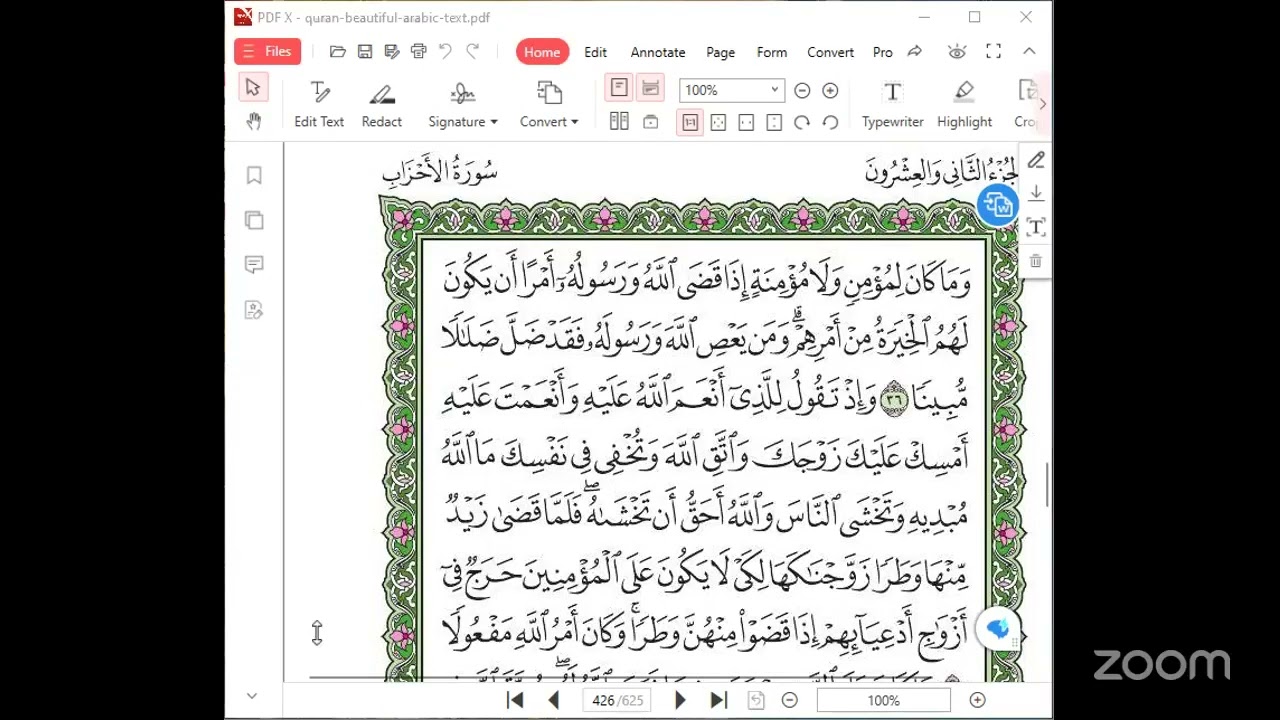 PDF X - quran-beautiful-arabic-text.pdf
Files Home Edit Annotate Page Form Convert Pro
100%
Edit Text Redact Signature Convert Typewriter Highlight Cro
سُورَةُ الأَحْزَابِ
الجُزْءُ الثَّانِى وَالعِشْرُونَ
وَمَا كَانَ لِمُؤْمِنٍ وَلَا مُؤْمِنَةٍ إِذَا قَضَى ٱللَّهُ وَرَسُولُهُۥٓ أَمْرًا أَن يَكُونَ
لَهُمُ ٱلْخِيَرَةُ مِنْ أَمْرِهِمْ ۗ وَمَن يَعْصِ ٱللَّهَ وَرَسُولَهُۥ فَقَدْ ضَلَّ ضَلَٰلًا
مُّبِينًا ٣٦ وَإِذْ تَقُولُ لِلَّذِىٓ أَنْعَمَ ٱللَّهُ عَلَيْهِ وَأَنْعَمْتَ عَلَيْهِ
أَمْسِكْ عَلَيْكَ زَوْجَكَ وَٱتَّقِ ٱللَّهَ وَتُخْفِى فِى نَفْسِكَ مَا ٱللَّهُ
مُبْدِيهِ وَتَخْشَى ٱلنَّاسَ وَٱللَّهُ أَحَقُّ أَن تَخْشَىٰهُ ۖ فَلَمَّا قَضَىٰ زَيْدٌ
مِّنْهَا وَطَرًا زَوَّجْنَٰكَهَا لِكَىْ لَا يَكُونَ عَلَى ٱلْمُؤْمِنِينَ حَرَجٌ فِىٓ
أَزْوَٰجِ أَدْعِيَآئِهِمْ إِذَا قَضَوْا۟ مِنْهُنَّ وَطَرًا ۚ وَكَانَ أَمْرُ ٱللَّهِ مَفْعُولًا
426/625
100%
zoom